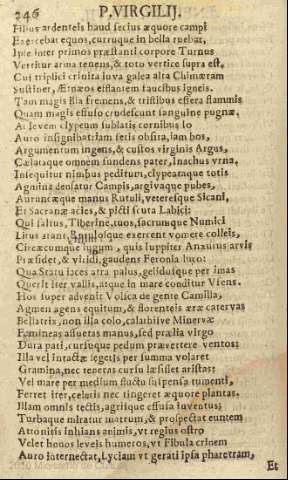 246 P. VIRGILIJ.
Filius ardenteis haud secius æquore campi
Exercebat equos, curruque in bella ruebat,
Ipse inter primos præstanti corpore Turnus
Vertitur arma tenens, & toto vertice supra est,
Cui triplici crinita iuva galea alta Chimæram
Sustinet, Ætnæos efflantem faucibus igneis.
Tam magis illa fremens, & tristibus effera flammis
Quam magis effuso crudescunt sanguine pugnæ.
At levem clypeum sublatis cornibus Io
Auro insignibat, iam setis obsita, iam bos,
Argumentum ingens, & custos virginis Argus,
Cælataque omnem fundens pater, Inachus vrna,
Insequitur nimbus peditum, clypeataque totis
Agmina densatur Campis, argivaque pubes,
Auruncæque manus Rutuli, veteresque Sicani,
Et Sacranæ acies, & picti scuta Labici:
Qui saltus, Tiberine, tuos, sacrumque Numici
Litus arant, Rutulosque exercent vomere colleis,
Circæumque iugum, quis Iuppiter Anxurus arvis
Præsidet, & viridi, gaudens Feronia luco:
Qua Saturæ iacet atra palus, gelidusque per imas
Quærit iter valleis, atque in mare conditur Vfens.
Hos super advenit Volsca de gente Camilla,
Agmen agens equitum, & florenteis ære catervas
Bellatrix, non illa colo, calathisve Minervæ
Fœmineas assuetas manus, sed prælia virgo
Dura pati, cursuque pedum prævertere ventos:
Illa vel intactæ segetis per summa volaret
Gramina, nec teneras cursu læsisset aristas:
Vel mare per medium fluctu suspensa tumenti,
Ferret iter, celeris nec tingeret æquore plantas.
Illam omnis tectis, agrisque effusa iuventus;
Turbaque miratur matrum, & prospectat euntem
Attonitis inhians animis, vt regius ostro
Velet honos leveis humeros, vt Fibula crinem
Auro internectat, Lyciam vt gerati ipsa pharetram,
Et